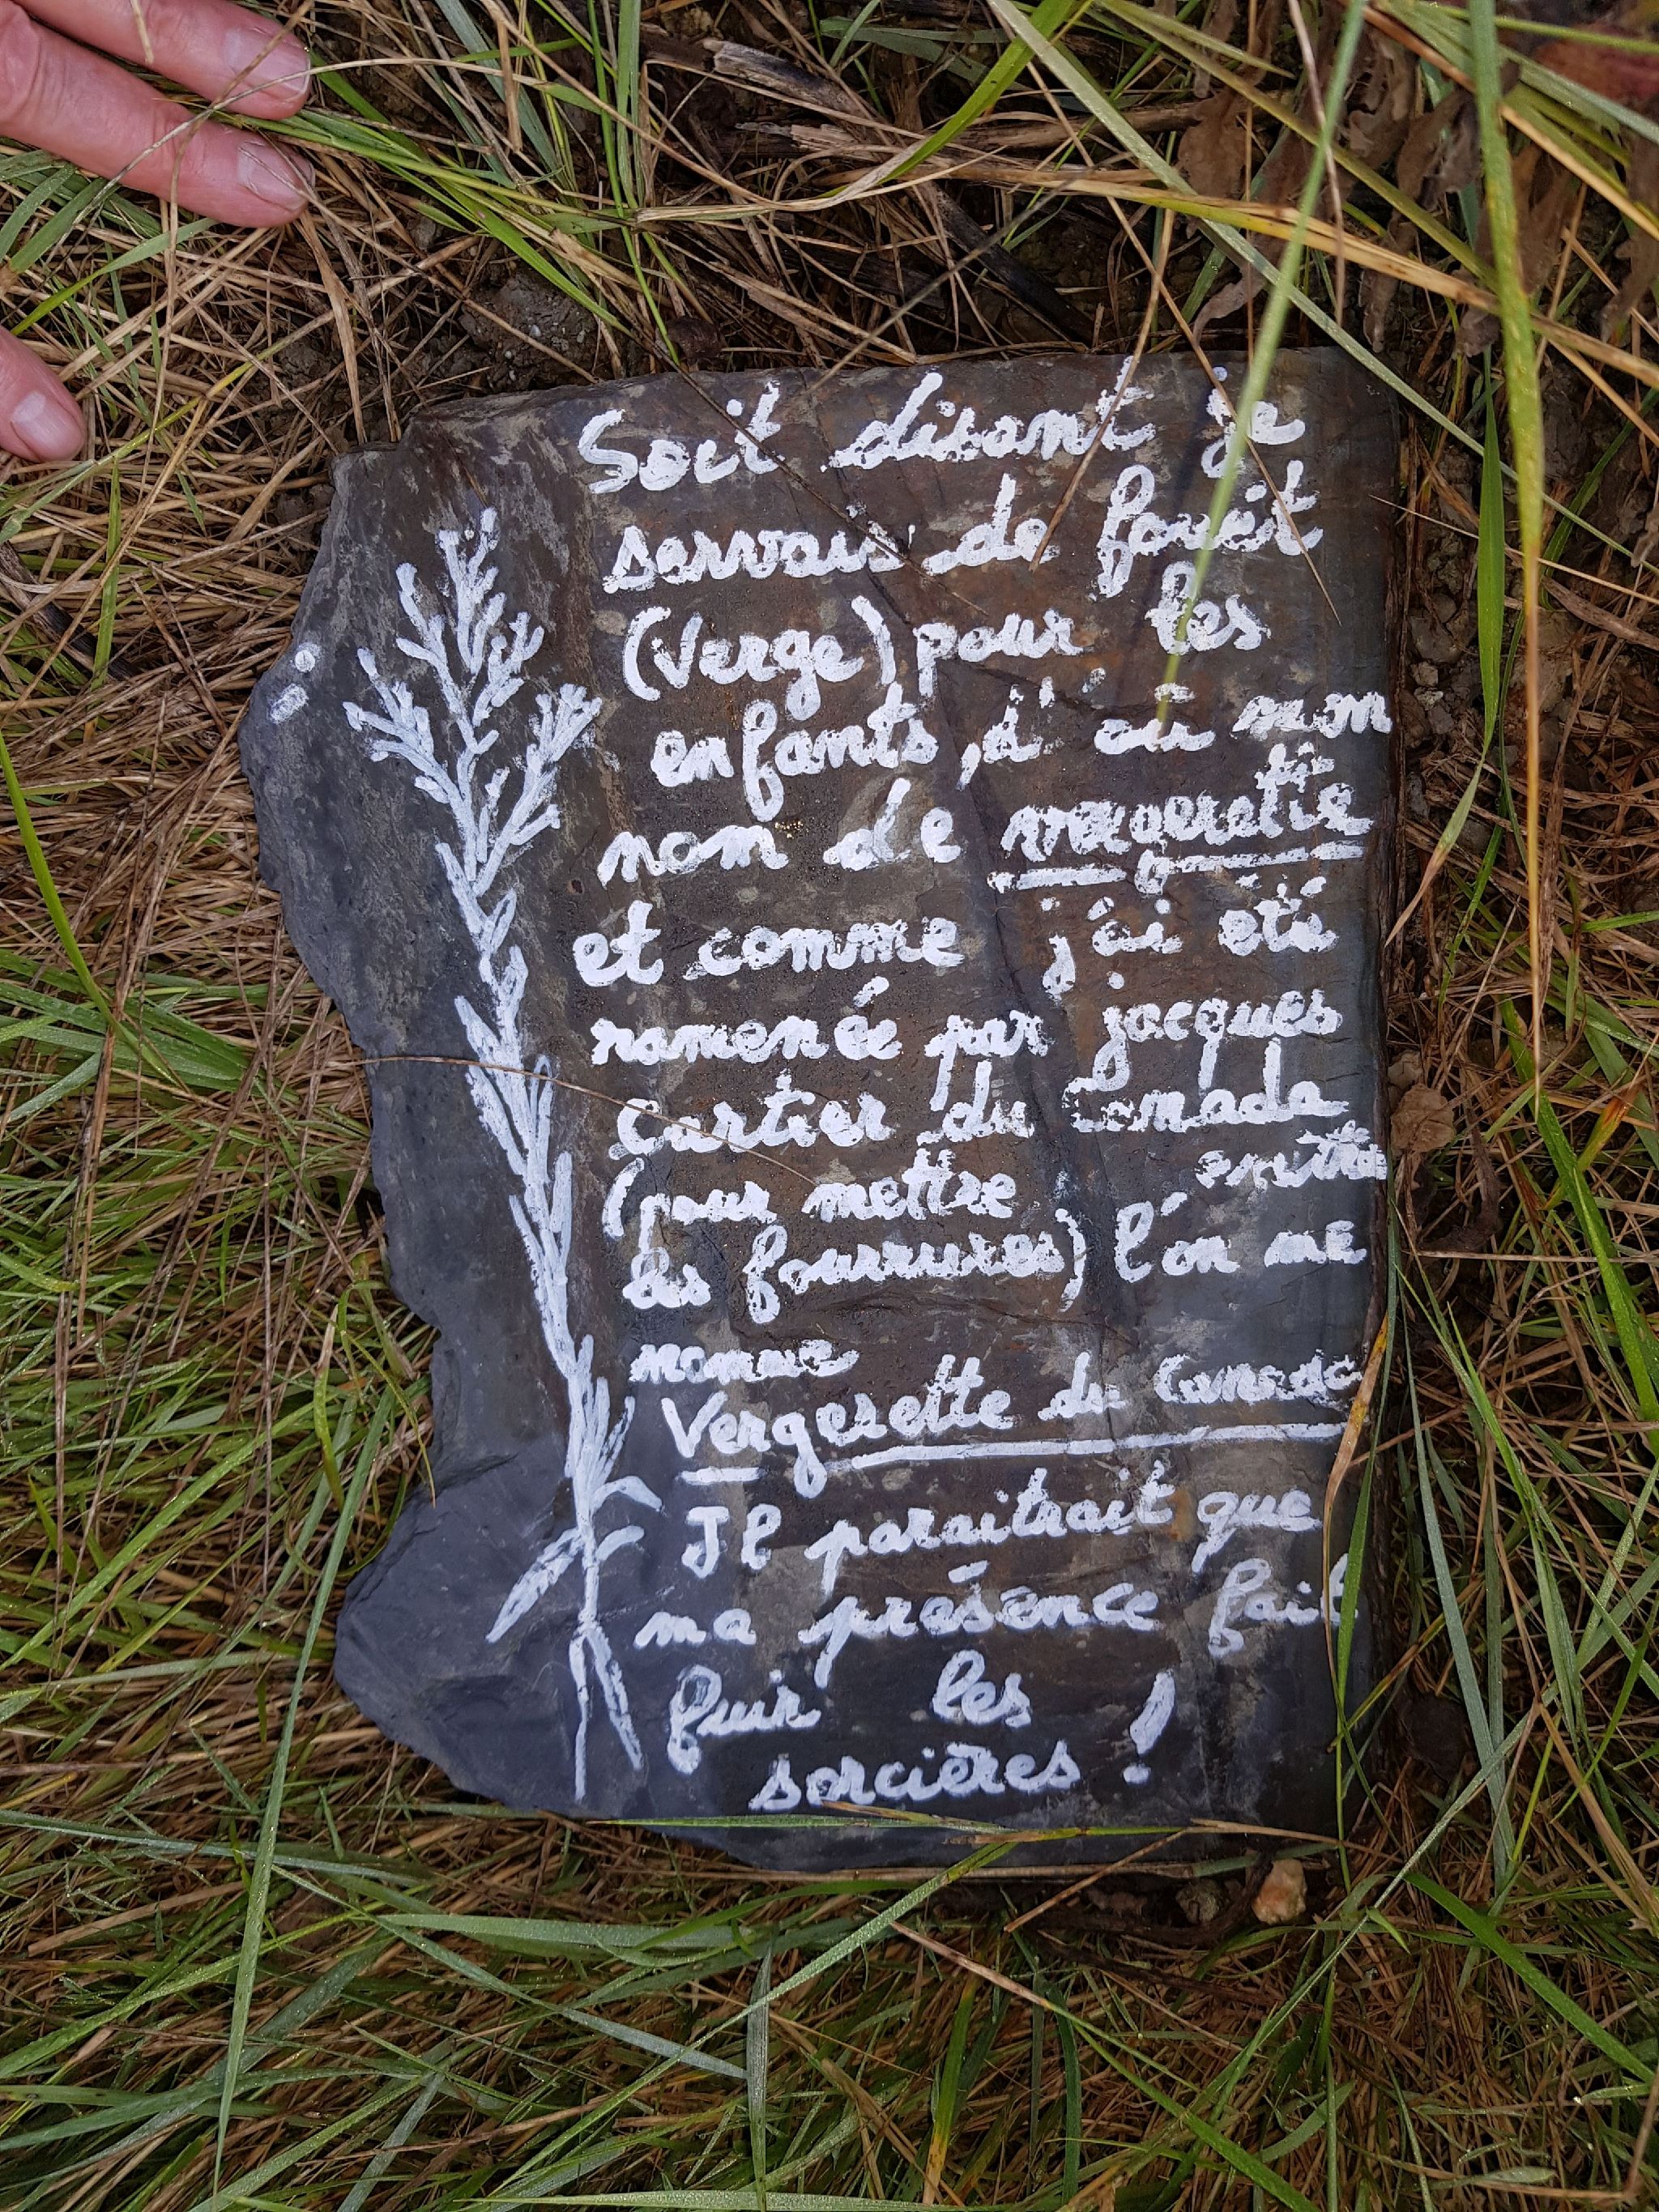 Soit disant je
servais de fouet
(Verge) pour les
enfants, d'ou mon
nom de vergerette
et comme j'ai été
ramenée par jacques
Cartier du Canada
(pour mettre entre
les fourrures) l'on me
nomme
Vergerette du Canada
Il paraitrait que
ma présence fait
fuir les
sorcières !